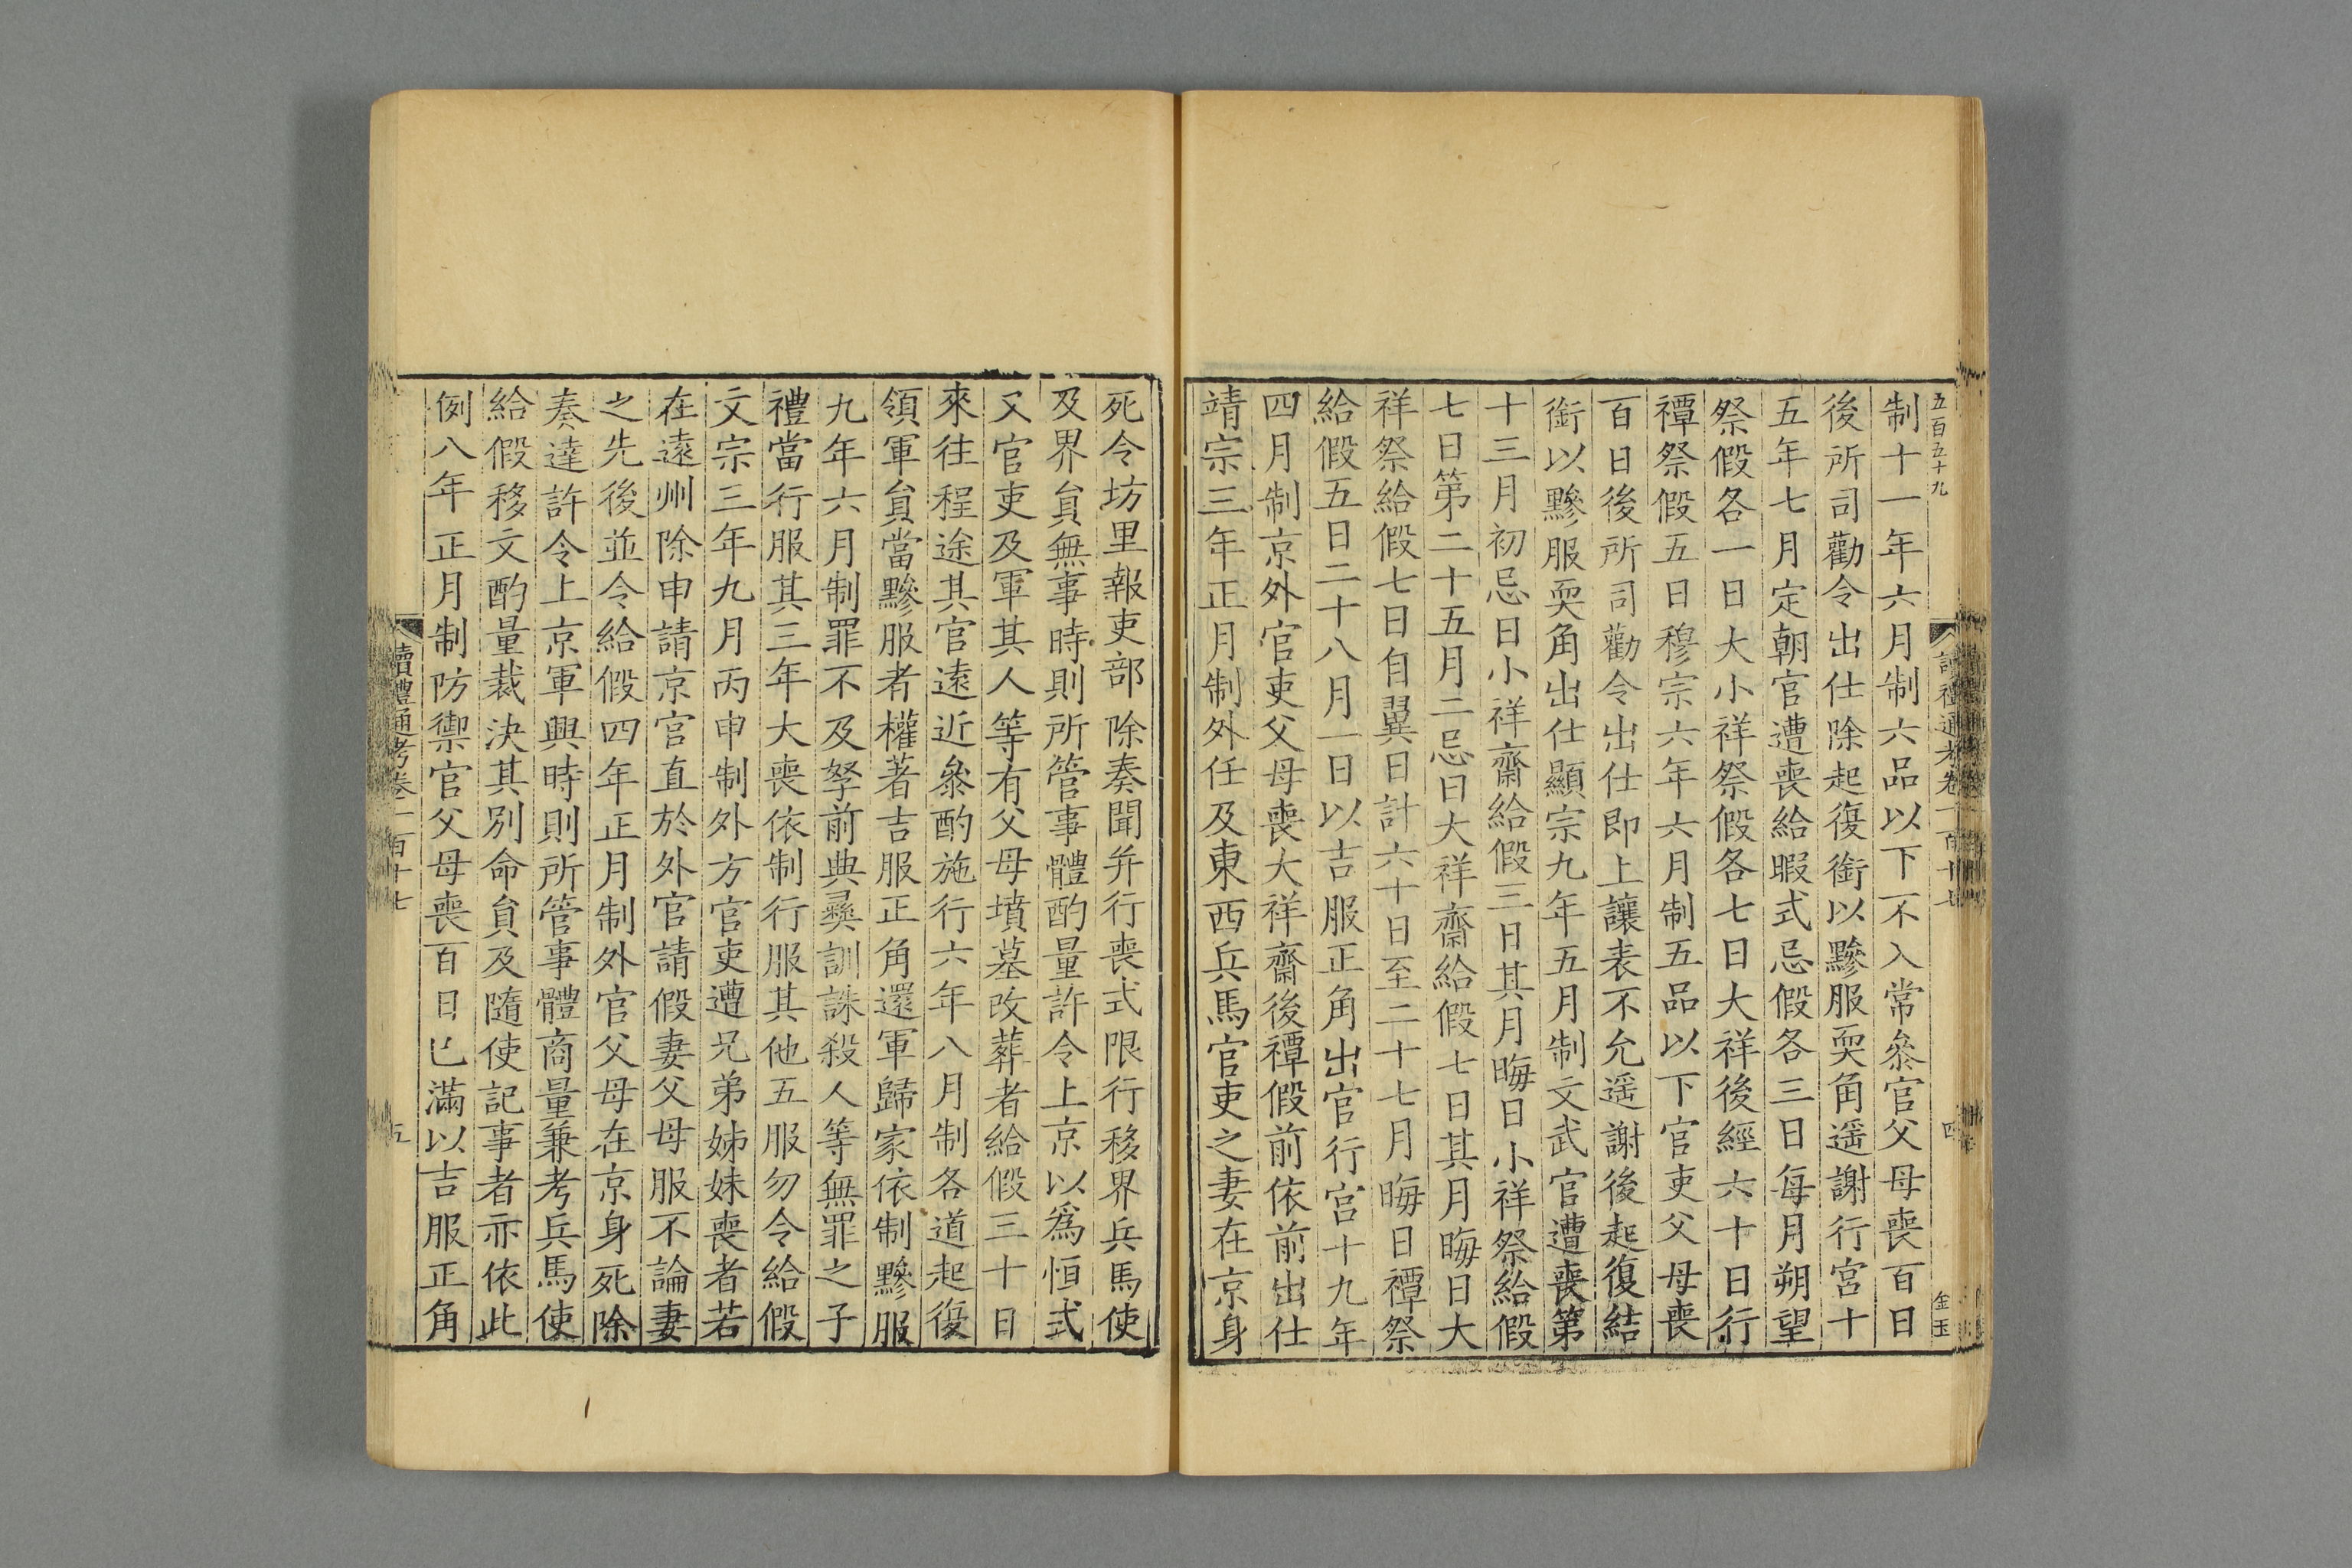 五百五十九
讀禮通考卷一百十七
四
金玉
制十一年六月制六品以下不入常叅官父母喪百日
後所司勸令出仕除起復銜以黲服耎角遥謝行宫十
五年七月定朝官遭喪給暇式忌假各三日每月朔望
祭假各一日大小祥祭假各七日大祥後經六十日行
禫祭假五日穆宗六年六月制五品以下官吏父母喪
百日後所司勸令出仕即上讓表不允遥謝後起復結
銜以黲服耎角出仕顯宗九年五月制文武官遭喪第
十三月初忌日小祥齋給假三日其月晦日小祥祭給假
七日第二十五月二忌日大祥齋給假七日其月晦日大
祥祭給假七日自翼日計六十日至二十七月晦日禫祭
給假五日二十八月一日以吉服正角出官行宫十九年
四月制京外官吏父母喪大祥齋後禫假前依前出仕
靖宗三年正月制外任及東西兵馬官吏之妻在京身
死令坊里報吏部除奏聞并行喪式限行移界兵馬使
及界貟無事時則所管事體酌量許令上京以爲恒式
又官吏及軍其人等有父母墳墓改葬者給假三十日
來往程途其官遠近叅酌施行六年八月制各道起復
領軍貟當黲服者權著吉服正角還軍歸家依制黲服
九年六月制罪不及孥前典彞訓誅殺人等無罪之子
禮當行服其三年大喪依制行服其他五服勿令給假
文宗三年九月丙申制外方官吏遭兄弟姊妹喪者若
在遠州除申請京官直於外官請假妻父母服不論妻
之先後並令給假四年正月制外官父母在京身死除
奏達許令上京軍興時則所管事體商量兼考兵馬使
給假移文酌量裁決其別命貟及隨使記事者亦依此
例八年正月制防禦官父母喪百日已滿以吉服正角
讀禮通考卷一百十七
五